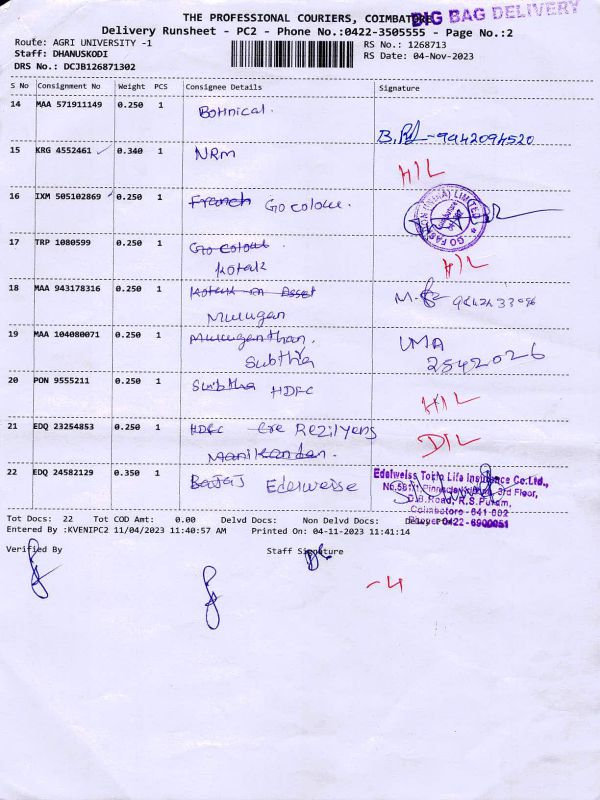 THE PROFESSIONAL COURIERS, COIMBATORE
BIG BAG DELIVERY
Delivery Runsheet - PC2 - Phone No.:0422-3505555 - Page No.:2
Route: AGRI UNIVERSITY -1
RS No.: 1268713
Staff: DHANUSKODI
RS Date: 04-Nov-2023
DRS No.: DCJB126871302
S No Consignment No Weight PCS Consignee Details Signature
14 MAA 571911149 0.250 1 Bothnical.
-9442094520
15 KRG 4552461 0.340 1 NRM
H/L
16 IXM 505102869 0.250 1 Franch Go colour.
GO FASHION (INDIA) LIMITED
17 TRP 1080599 0.250 1 Go colour.
Kotak
H/L
18 MAA 943178316 0.250 1 Kotak Asset
Murugan
19 MAA 104080071 0.250 1 Muruganthan.
Subtha
UMA
2542026
20 PON 9555211 0.250 1 Subtha HDFC
H/L
21 EDQ 23254853 0.250 1 HDFC Cre Rezilyens
Manikandan.
D/L
22 EDQ 24582129 0.350 1 Bajaj Edelweise
Edelweiss Tokio Life Insurance Co.Ltd.,
3rd Floor,
D.B.Road, R.S.Puram,
Coimbatore - 641 002
0422-6900051
Tot Docs: 22 Tot COD Amt: 0.00 Delvd Docs: Non Delvd Docs:
Entered By :KVENIPC2 11/04/2023 11:40:57 AM Printed On: 04-11-2023 11:41:14
Verified By Staff Signature
-4